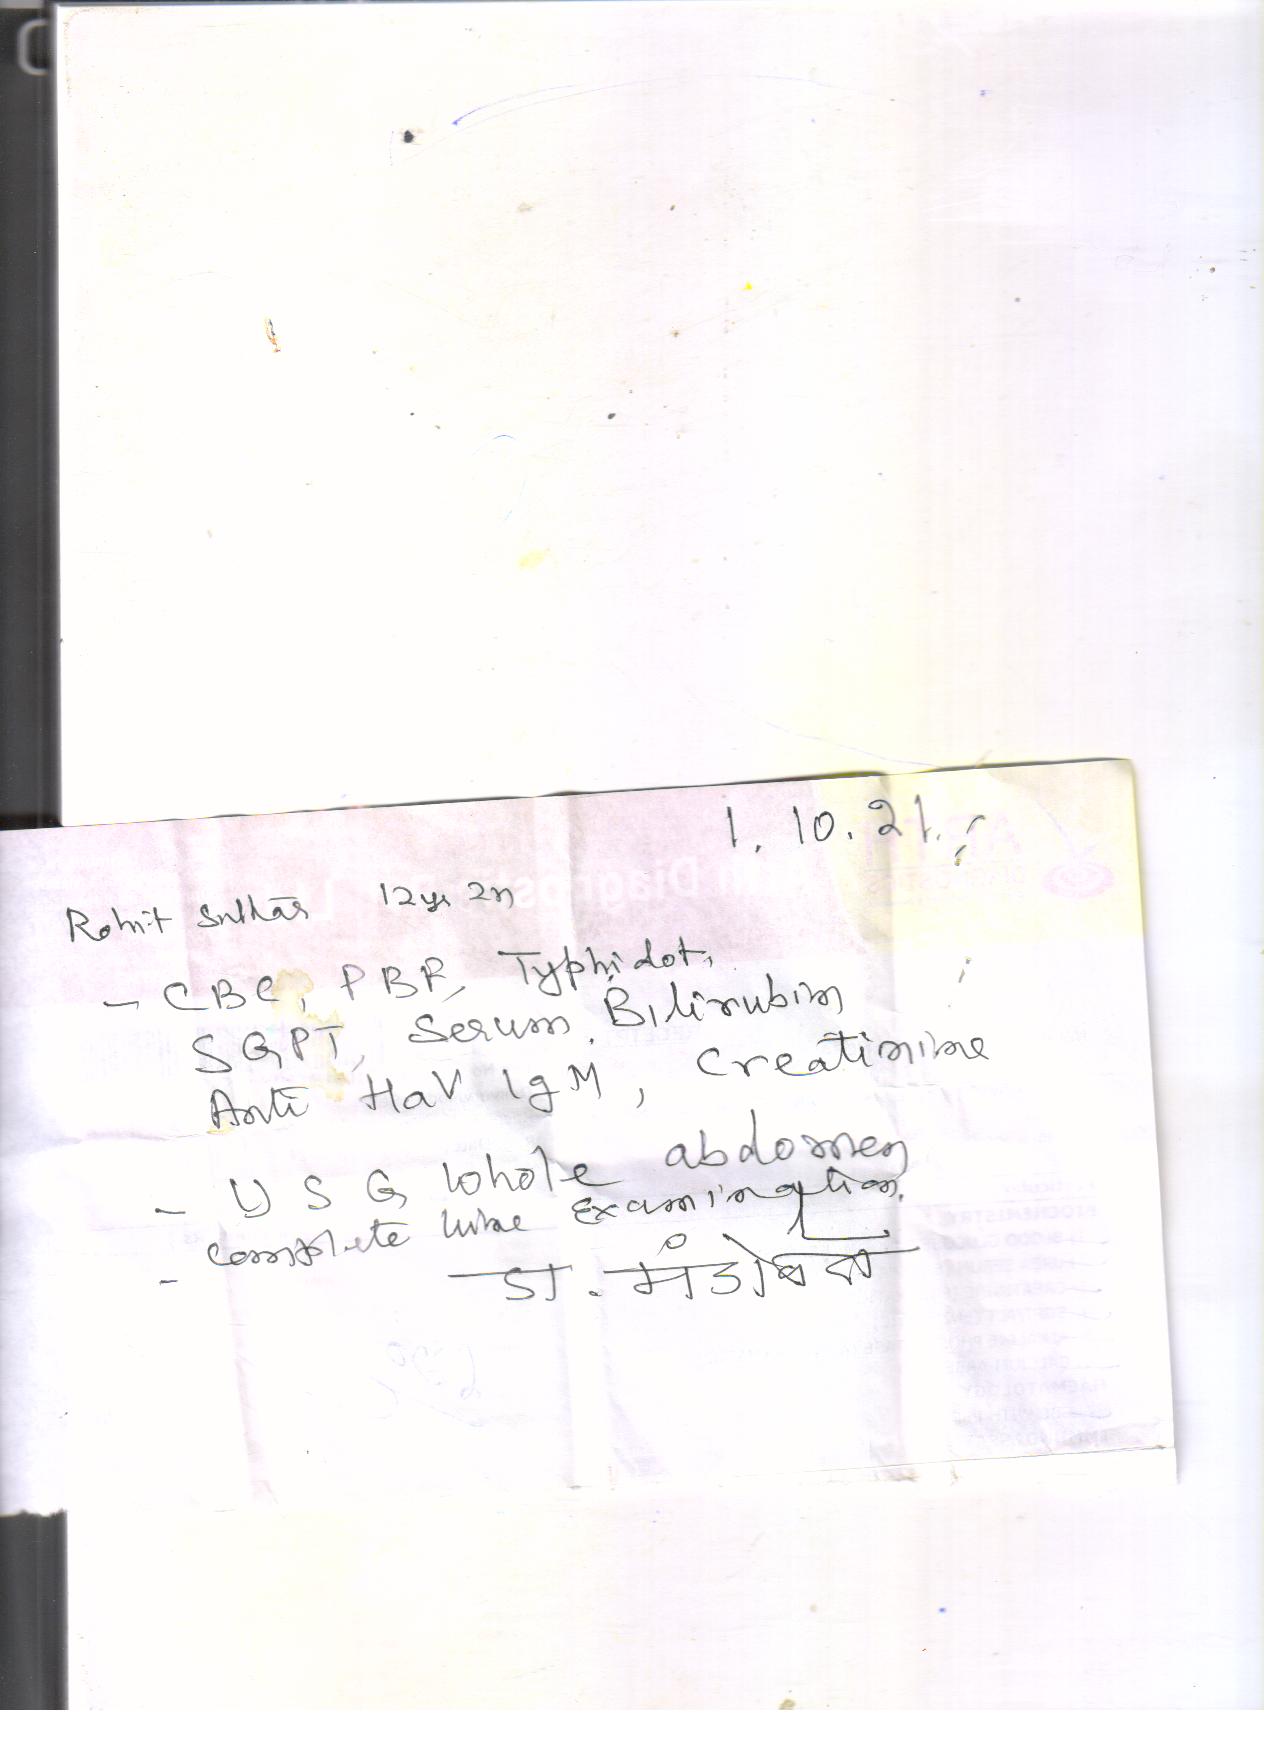 1.10.21.
Rohit Suthar 12yr 2m
- CBC, PBF, Typhidot,
SGPT, Serum Bilirubin
Anti HaV IgM, Creatinine
- USG whole abdomen
- complete urine examination.
डा.